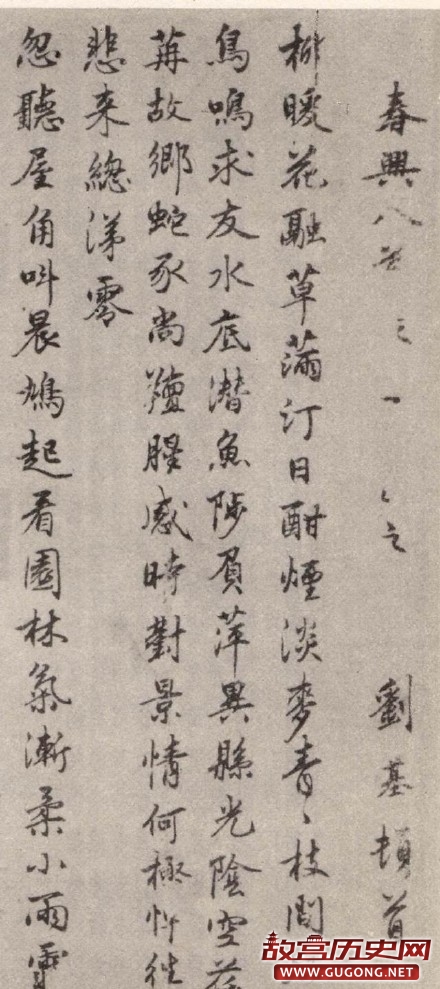 春興八 劉基頓首
柳暖花融草滿汀日酣煙淡麥青〻枝間
鳥鳴求友水底潛魚陟負萍異縣光陰空荏
苒故鄉蛇豕尚羶腥感時對景情何極忤往
悲来總涕零
忽聽屋角叫晨鳩起看園林氣漸柔小雨
故宫历史网
WWW.GUGONG.NET